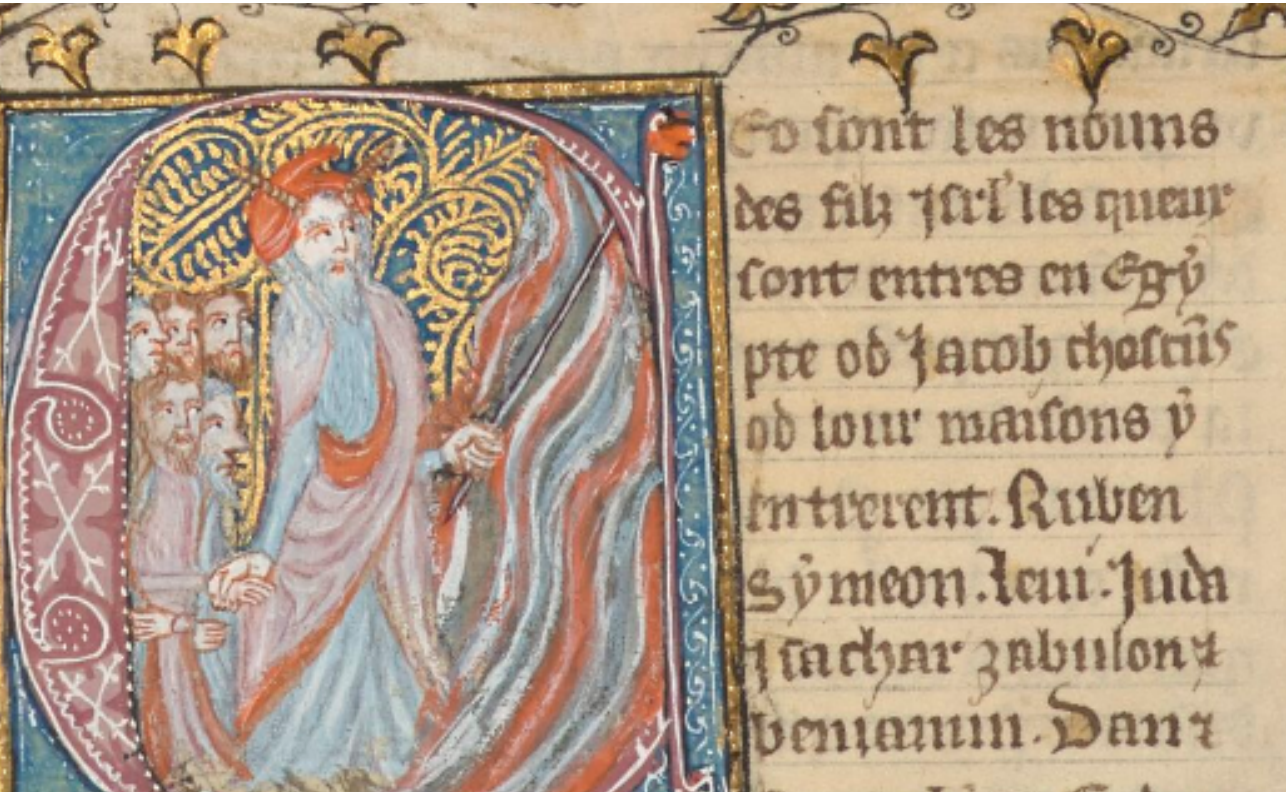 Eo sont les nouns
des filz Isrl' les queux
sont entres en Egẏ
pte od Jacob choscūs
od lour maisons ẏ
entrerent. Ruben
Sẏmeon. leui. Juda
Isachar zabulon ⁊
beniamin. Dan ⁊